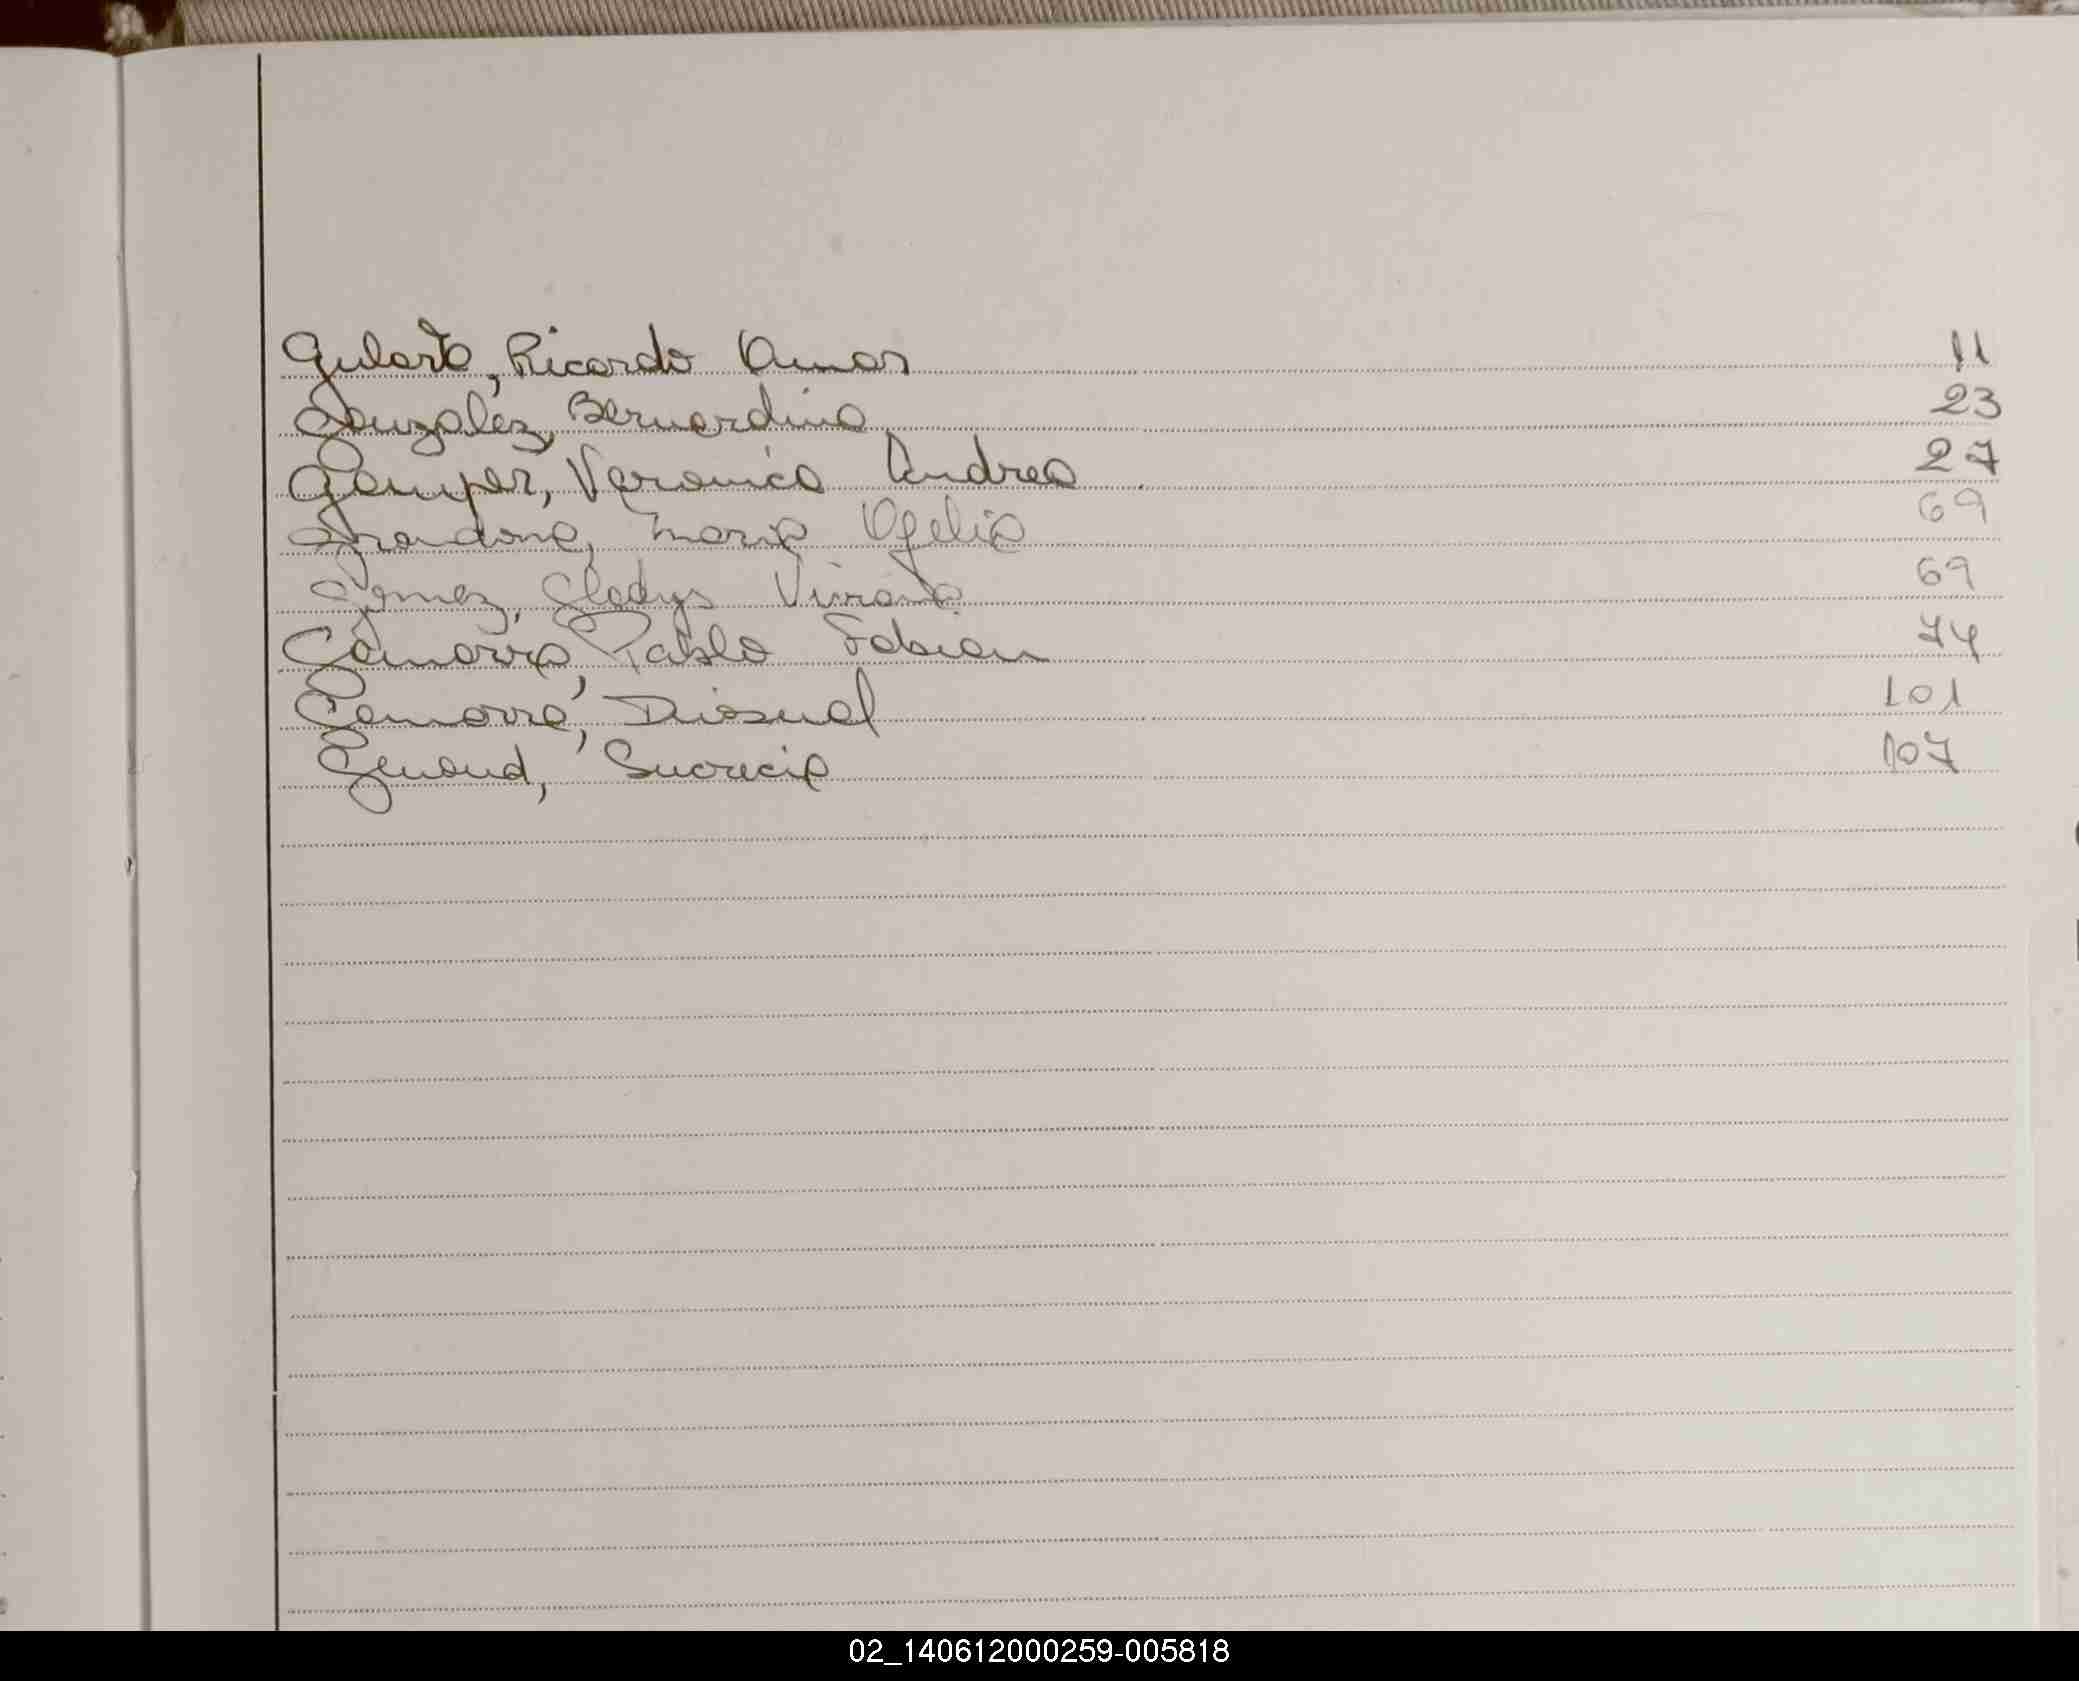 Gularte, Ricardo Omar 11
Gonzalez, Bernardino 23
Gemper, Veronica Andrea 27
Grandona, Maria Ofelia 69
Gomez, Gladys Viviana 69
Gamarra, Pablo Fabian 74
Gamarra, 101
Genoud, Lucrecia 107
02_140612000259-005818